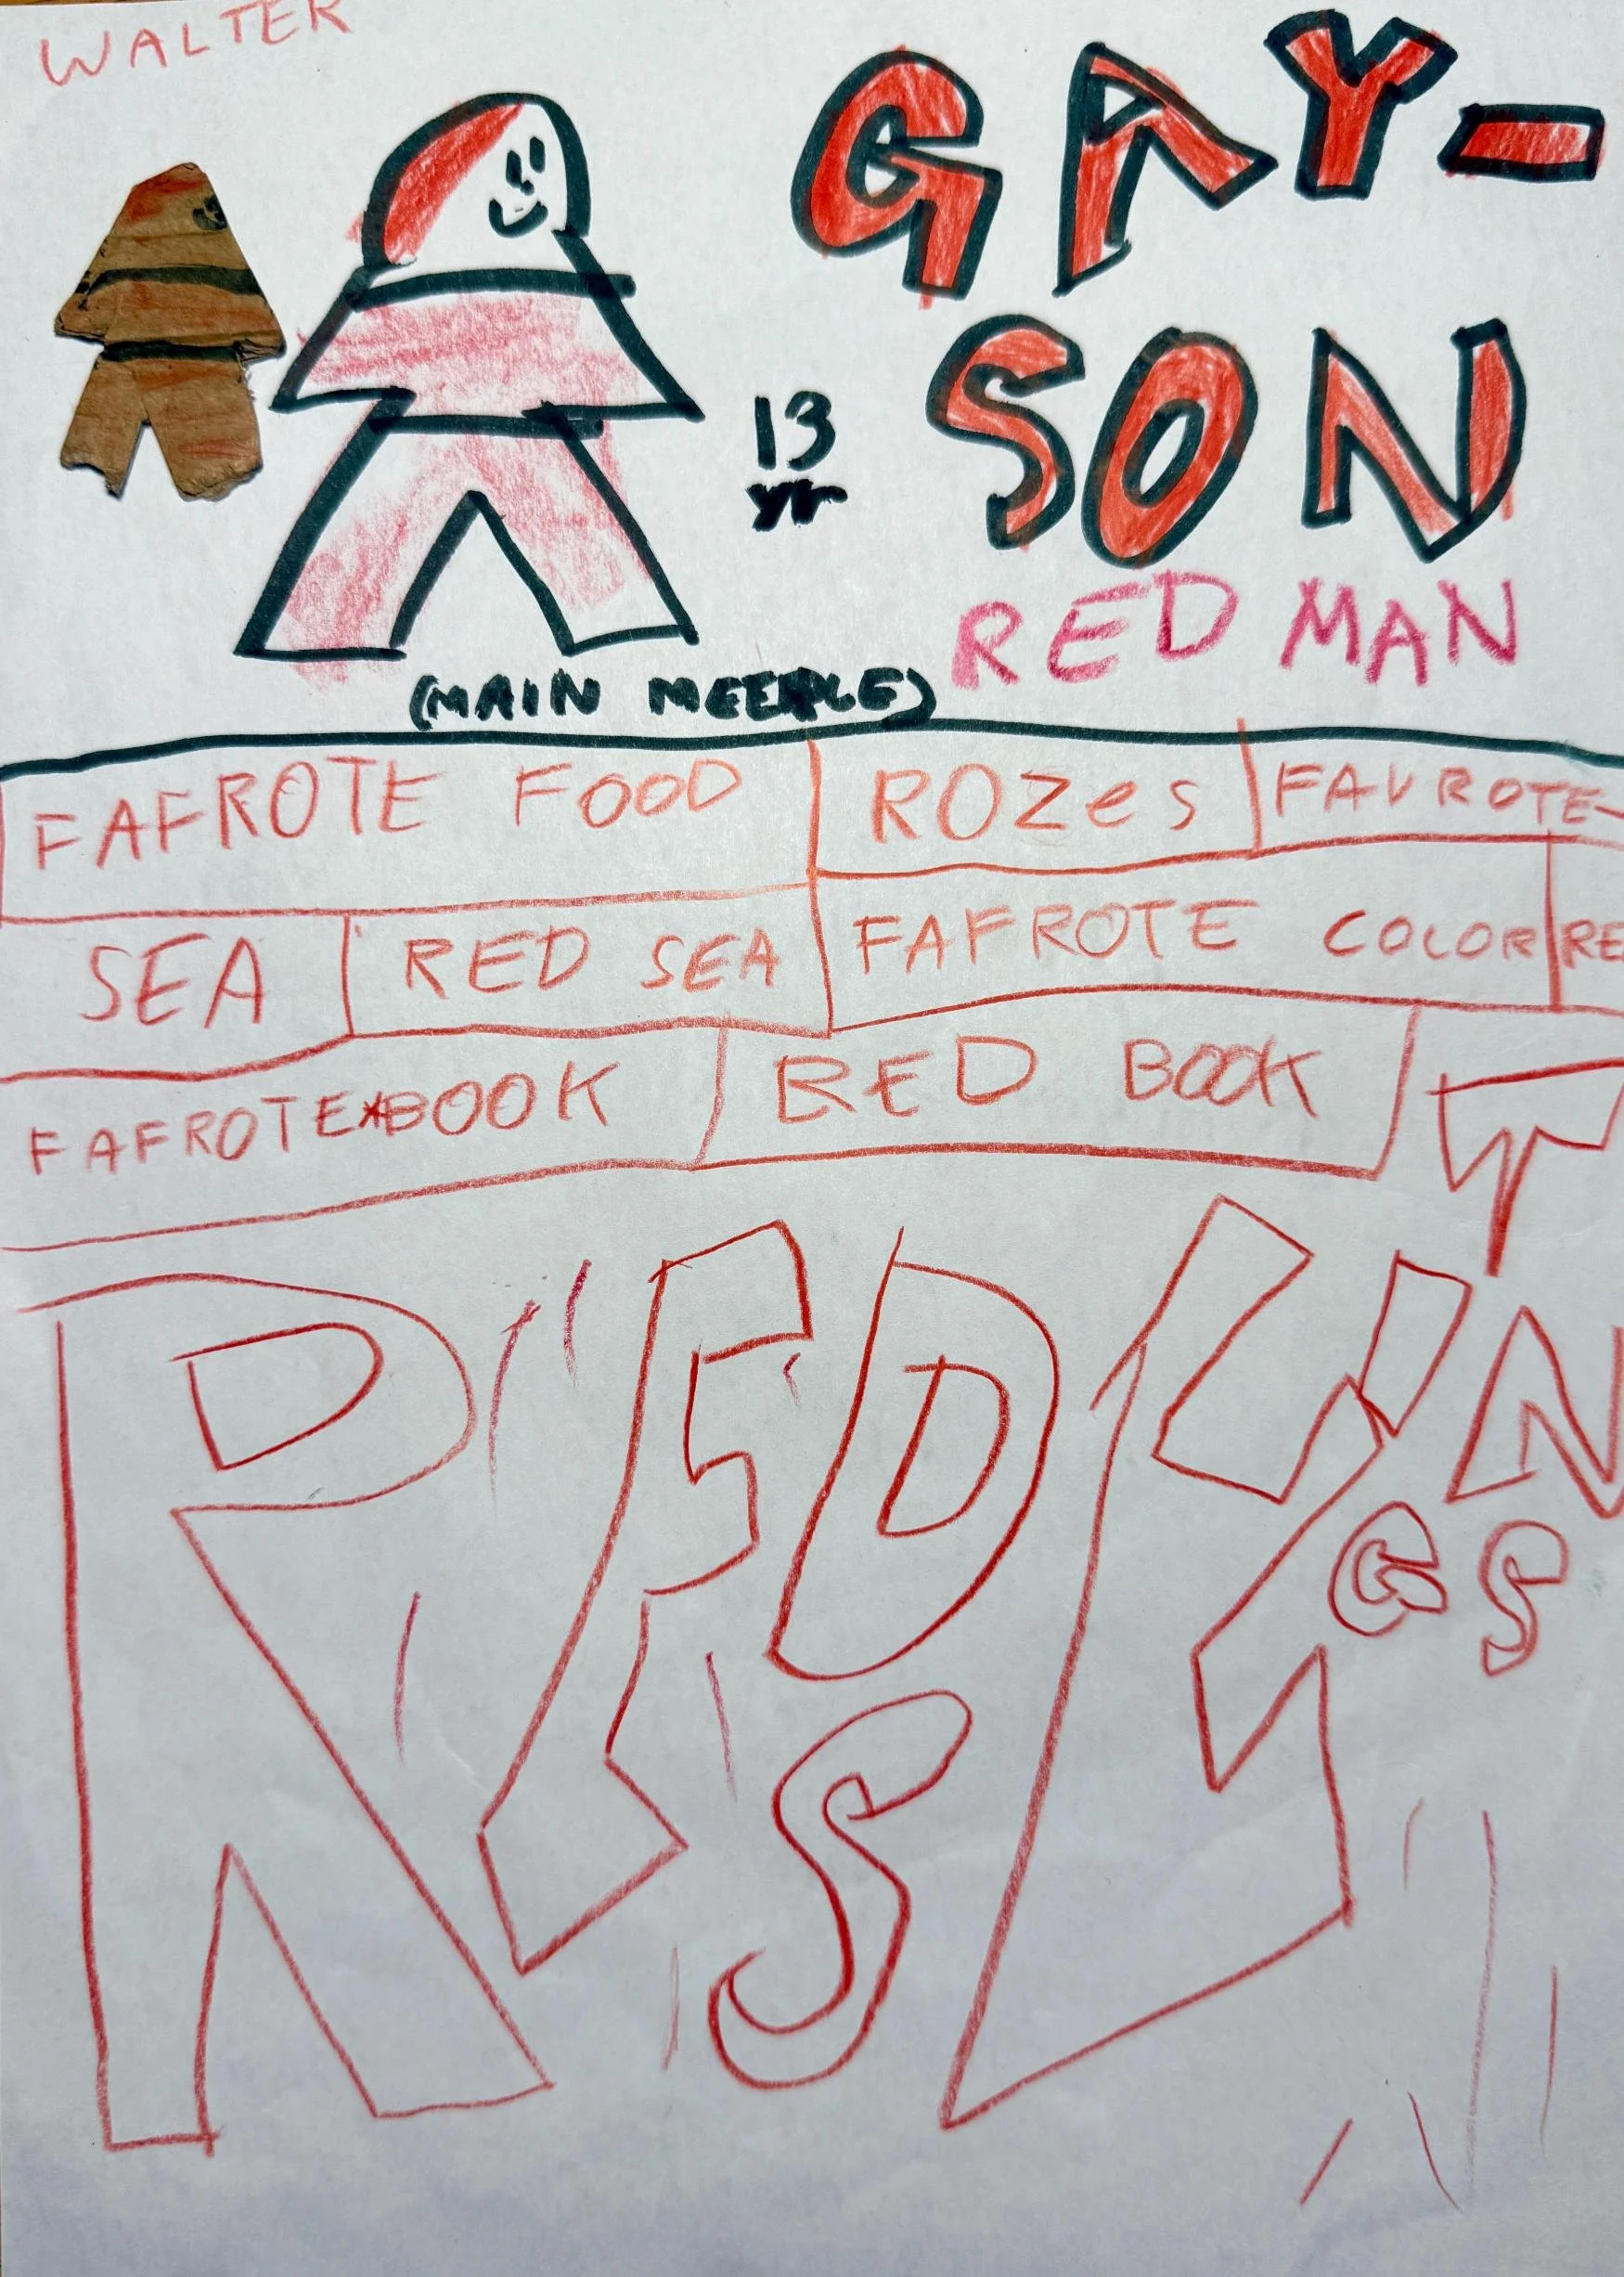 WALTER
GAY-
SON
13
yr
RED MAN
(MAIN MEEPLE)
FAFROTE FOOD ROZes FAVROTE-
SEA RED SEA FAFROTE COLOR RE
FAFROTE BOOK RED BOOK
REDS
T
N
G S